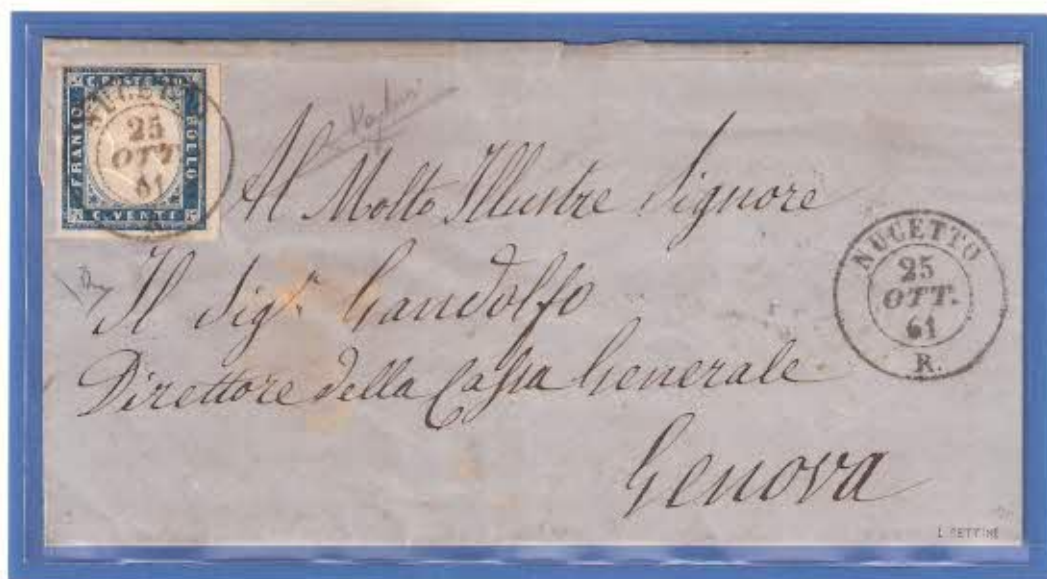 C. POSTE
FRANCO
BOLLO
C. VENTI
NUCETTO
25
OTT.
61
Al Molto Illustre Signore
Il Sig.r Gandolfo
Direttore della Cassa Generale
Genova
NUCETTO
25
OTT.
61
R.